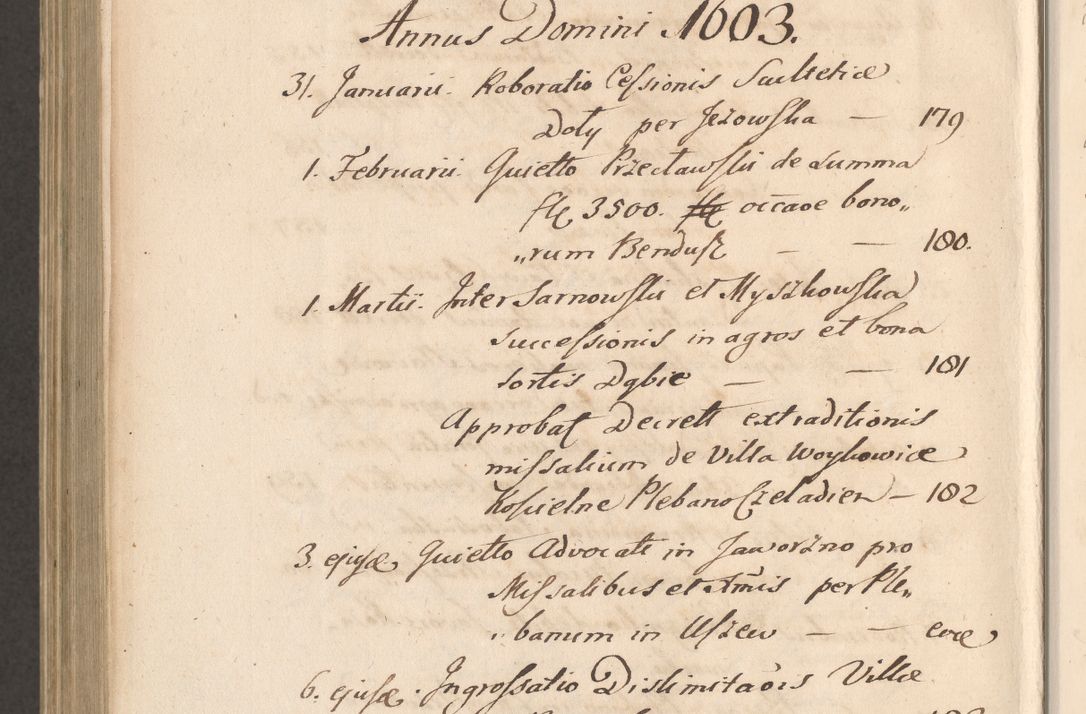 Annus Domini 1603.
31. Januarii. Roboratio Cessionis Scultetiæ
Doły per Jeżowska — 179
1. Februarii. Quietto Przecławski de summa
fl 3500. occãoe bono„
„rum Bendusz — — 180.
1. Martii. Inter Sarnowski et Myszkowska
successionis in agros et bona
sortis Dąbie — — 181
Approbat Decrett extraditionis
missalium de Villa Woykowice
Kościelne Plebano Czeladien — 182
3. ejusdæ Quietto Advocati in Jaworzno pro
Missalibus et Añis per Ple„
„banum in Uszew — —
6. ejusdæ. Ingrossatio Dislimitãois Villæ